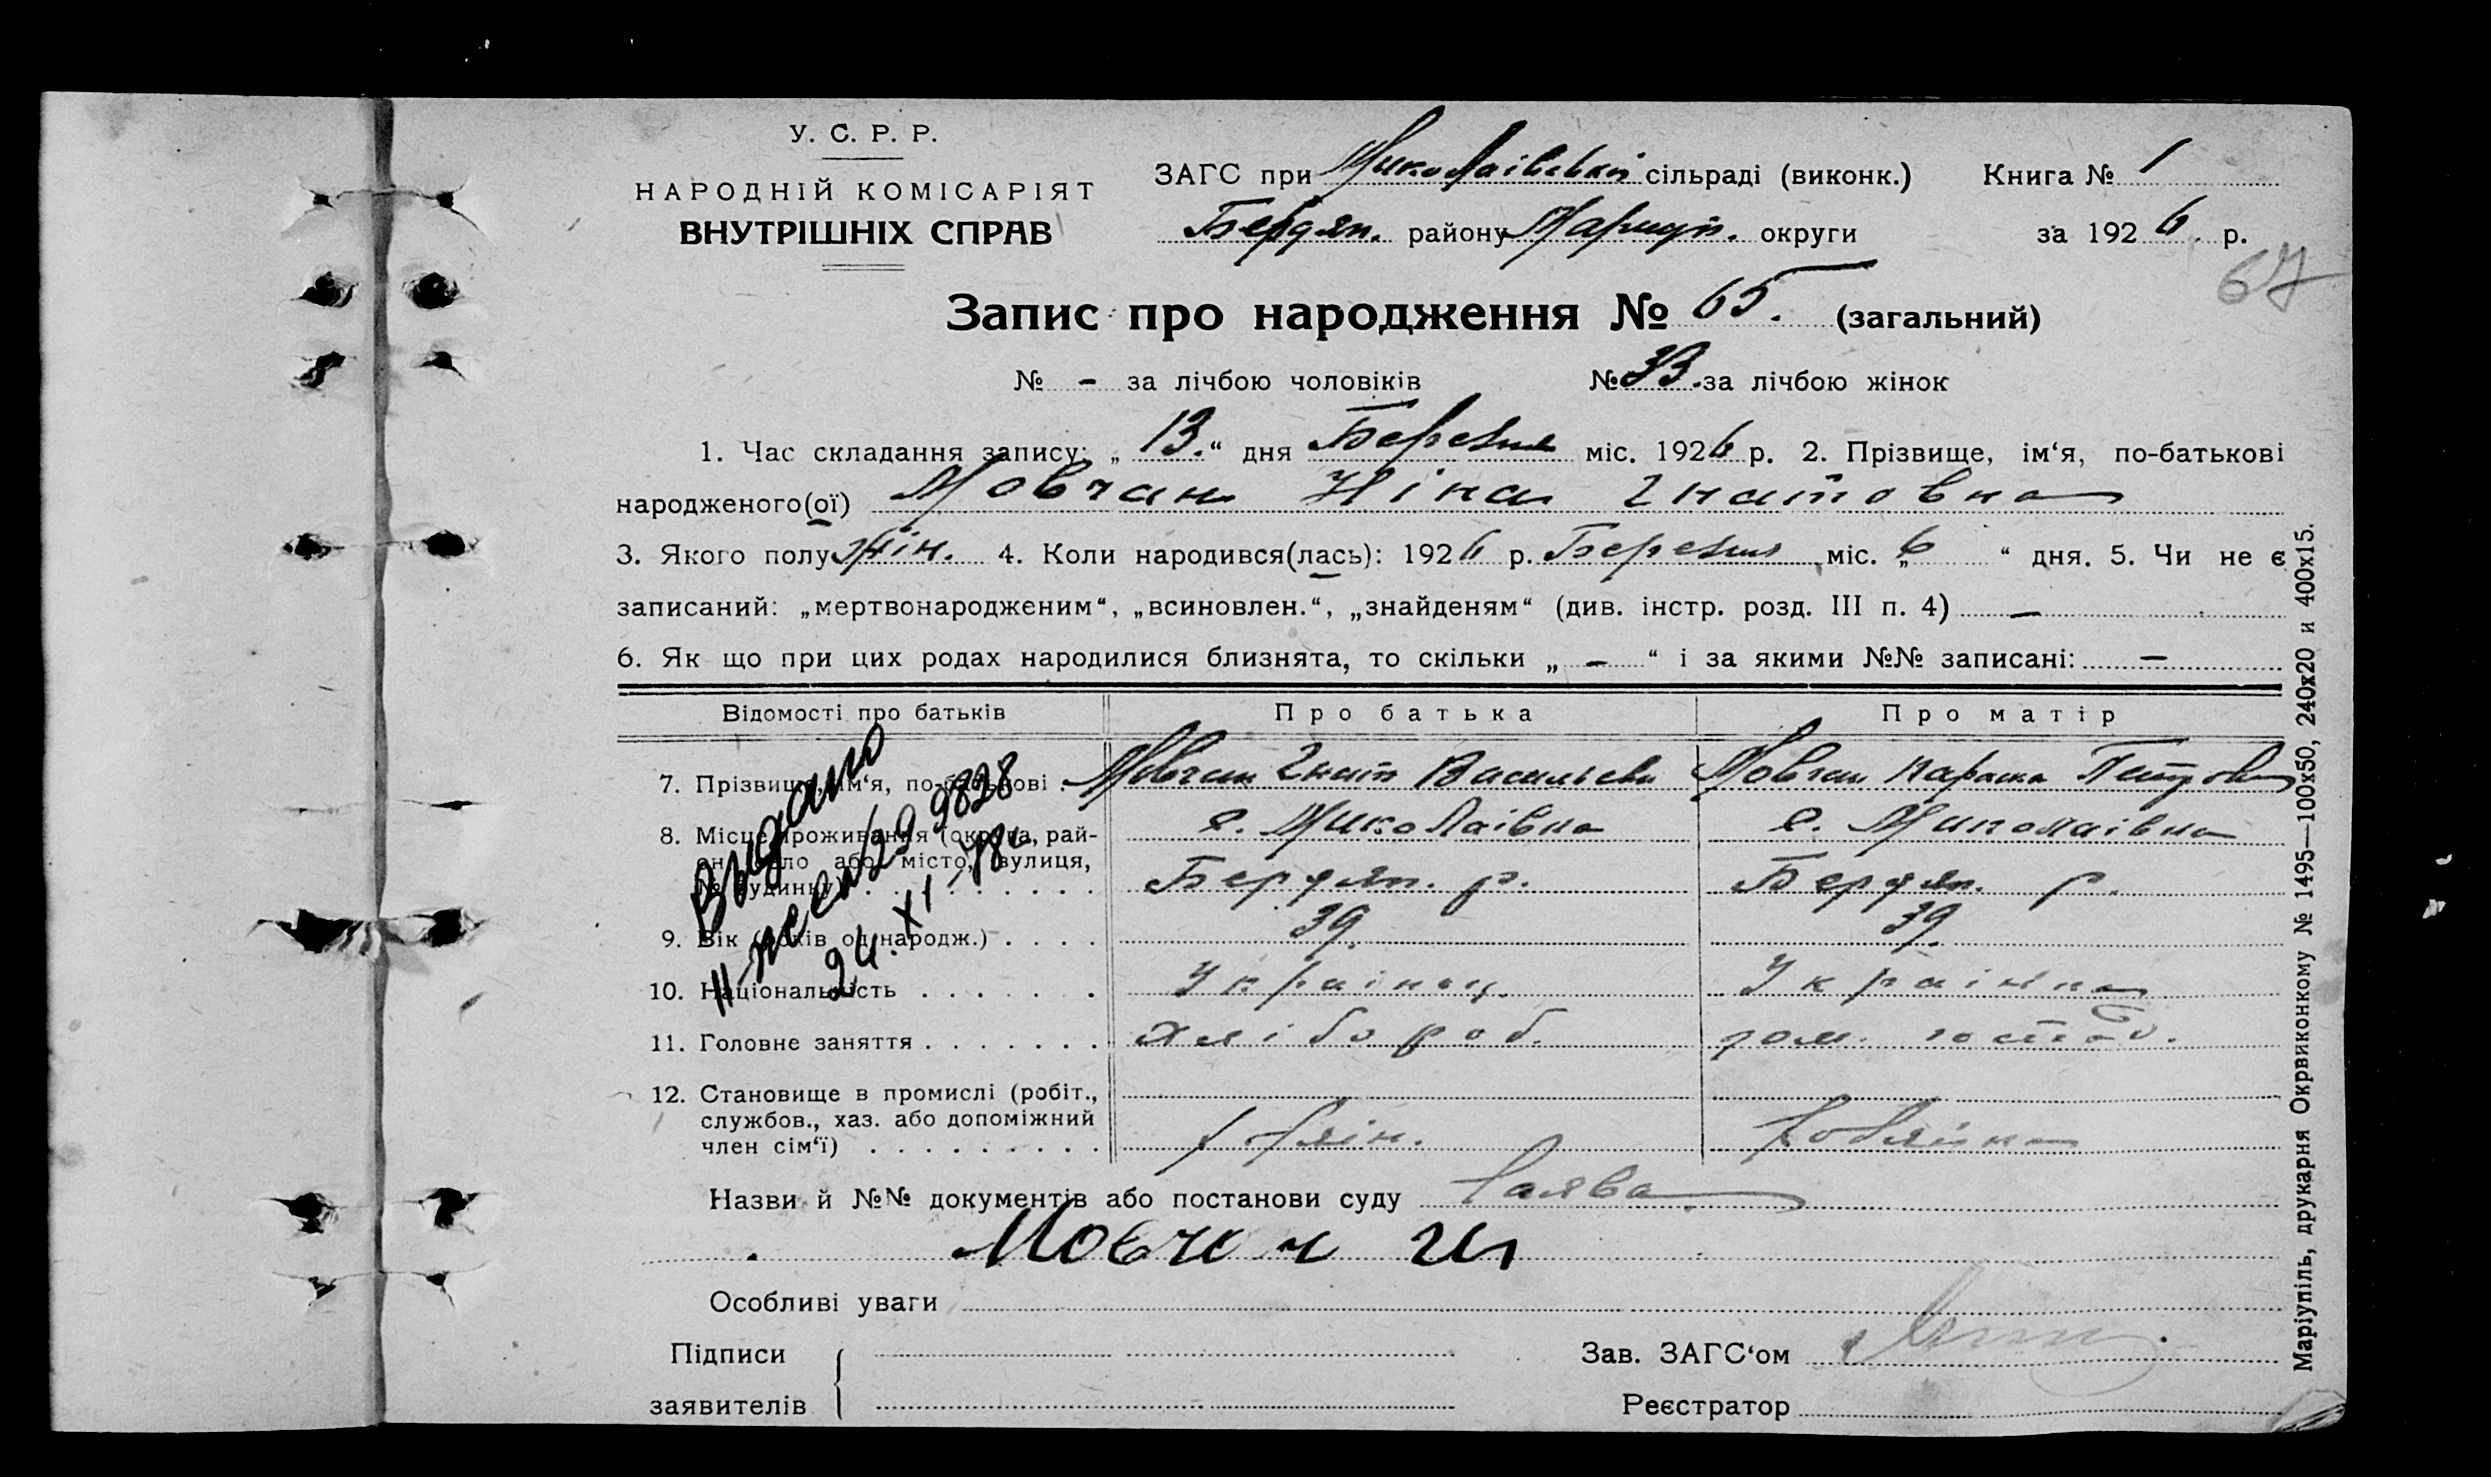 У. С. Р. Р.
НАРОДНІЙ КОМІСАРІЯТ
ВНУТРІШНІХ СПРАВ
ЗАГС при Миколаівській сільраді (виконк.) Книга № 1
Бердян. району Маріуп. округи за 1926 р.
67
Запис про народження № 65. (загальний)
№ - за лічбою чоловіків № 33. за лічбою жінок
1. Час складання запису: „ 13. “ дня Березня міс. 1926 р. 2. Прізвище, ім‘я, по-батькові
народженого(ої) Мовчан Ніна Гнатовна
3. Якого полу жін. 4. Коли народився(лась): 1926 р. Березня міс. „ 6 “ дня. 5. Чи не є
записаний: „мертвонародженим“, „всиновлен.“, „знайденям“ (див. інстр. розд. III п. 4) —
6. Як що при цих родах народилися близнята, то скільки „ — “ і за якими №№ записані: —
Відомості про батьків Про батька Про матір
7. Прізвище, ім‘я, по-батькові . Мовчан Гнат Васильев Мовчан Параска Петровн
8. Місце проживання (округа, рай- с. Миколаівка с. Миколаівка
он, село або місто, вулиця,
№ будинку) . . . . . . . . Бердян. р. Бердян. р.
9. Вік (років од народж.) . . . . 39. 39.
10. Національність . . . . . . Украінец. Украінка
11. Головне заняття . . . . . . . Хлібороб. дом. господ.
12. Становище в промислі (робіт.,
службов., хаз. або допоміжний
член сім‘ї) . . . . . . . . .
Выдано
24. XI
Назви й №№ документів або постанови суду Заява
Мовчан
Особливі уваги
Підписи
заявителів
Зав. ЗАГС‘ом
Реєстратор
Маріупіль, друкарня Окрвиконкому № 1495—100x50, 240x20 и 400x15.